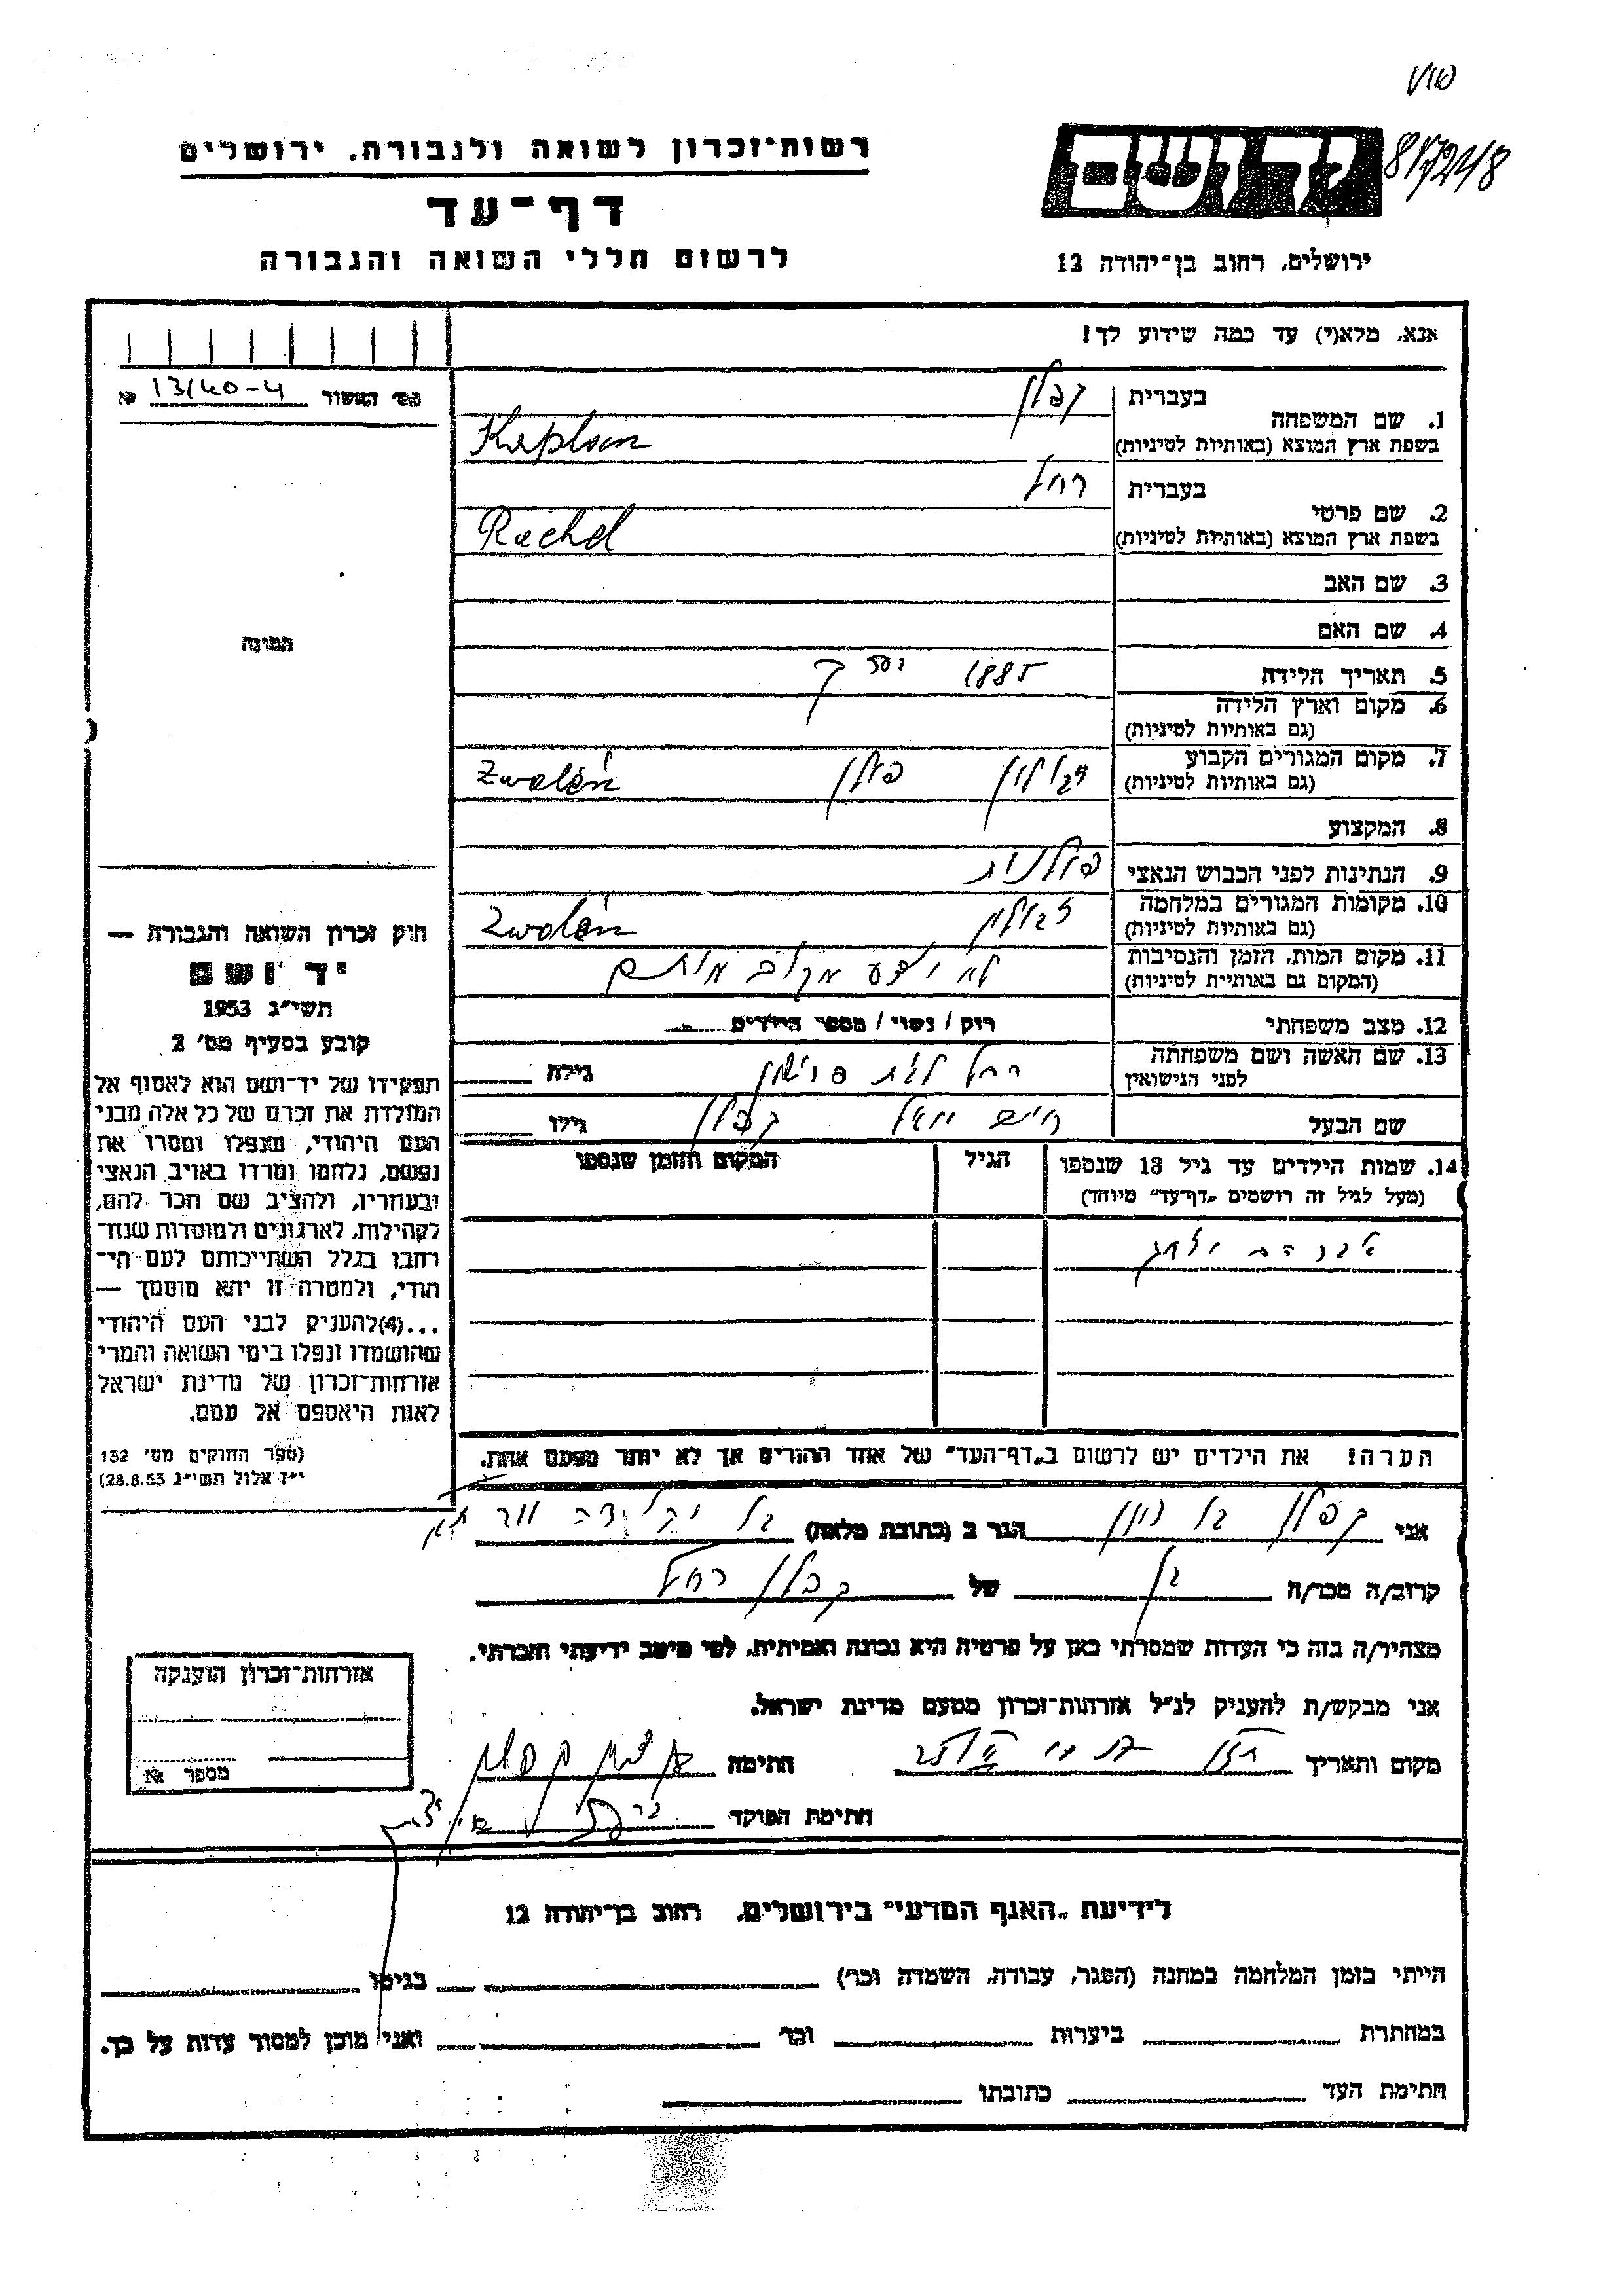 817248
רשות־זכרון לשואה ולגבורה, ירושלים
דף־עד
לרשום חללי השואה והגבורה
ידושם
ירושלים, רחוב בן־יהודה 12
אנא, מלא(י) עד כמה שידוע לך!
מס׳ האשור 13/40-4 №
1. שם המשפחה
בעברית קפלן
בשפת ארץ המוצא (באותיות לטיניות) Kaplan
2. שם פרטי
בעברית רחל
בשפת ארץ המוצא (באותיות לטיניות) Rachel
3. שם האב
4. שם האם
5. תאריך הלידה 1885
6. מקום וארץ הלידה
(גם באותיות לטיניות)
7. מקום המגורים הקבוע פולין Zwoleń
(גם באותיות לטיניות)
8. המקצוע
9. הנתינות לפני הכבוש הנאצי פולנית
10. מקומות המגורים במלחמה Zwoleń
(גם באותיות לטיניות)
11. מקום המות, הזמן והנסיבות לא ידוע מקום מותם
(המקום גם באותיות לטיניות)
12. מצב משפחתי רווק / נשוי / מספר הילדים
13. שם האשה ושם משפחתה רחל לבית גילה
לפני הנישואין
שם הבעל חיים קפלן גילו
14. שמות הילדים עד גיל 18 שנספו הגיל המקום והזמן שנספו
(מעל לגיל זה רושמים „דף־עד" מיוחד)
אברהם יצחק
הערה! את הילדים יש לרשום ב„דף־העד" של אחד ההורים אך לא יותר מפעם אחת.
התמונה
חוק זכרון השואה והגבורה —
יד ושם
תשי״ג 1953
קובע בסעיף מס׳ 2
תפקידו של יד־ושם הוא לאסוף אל
המולדת את זכרם של כל אלה מבני
העם היהודי, שנפלו ומסרו את
נפשם, נלחמו ומרדו באויב הנאצי
ובעוזריו, ולהציב שם וזכר להם,
לקהילות, לארגונים ולמוסדות שנח־
רבו בגלל השתייכותם לעם הי־
הודי, ולמטרה זו יהא מוסמך —
...(4)להעניק לבני העם היהודי
שהושמדו ונפלו בימי השואה והמרי
אזרחות־זכרון של מדינת ישראל
לאות היאספם אל עמם.
(ספר החוקים מס׳ 132
י״ז אלול תשי״ג 28.8.53)
אני קפלן בן ציון הגר ב (כתובת מלאה)
קרוב/ה מכר/ה בן של קפלן רחל
מצהיר/ה בזה כי העדות שמסרתי כאן על פרטיה היא נכונה ואמיתית, לפי מיטב ידיעתי והכרתי.
אני מבקש/ת להעניק לנ״ל אזרחות־זכרון מטעם מדינת ישראל.
מקום ותאריך חתימה בן ציון קפלן
חתימת הפוקד
אזרחות־זכרון הוענקה
מספר №
לידיעת „האגף המדעי" בירושלים, רחוב בן־יהודה 12
הייתי בזמן המלחמה במחנה (הסגר, עבודה, השמדה וכו׳) בגיטו
במחתרת ביערות וכו׳ ואני מוכן למסור עדות על כך.
חתימת העד כתובתו